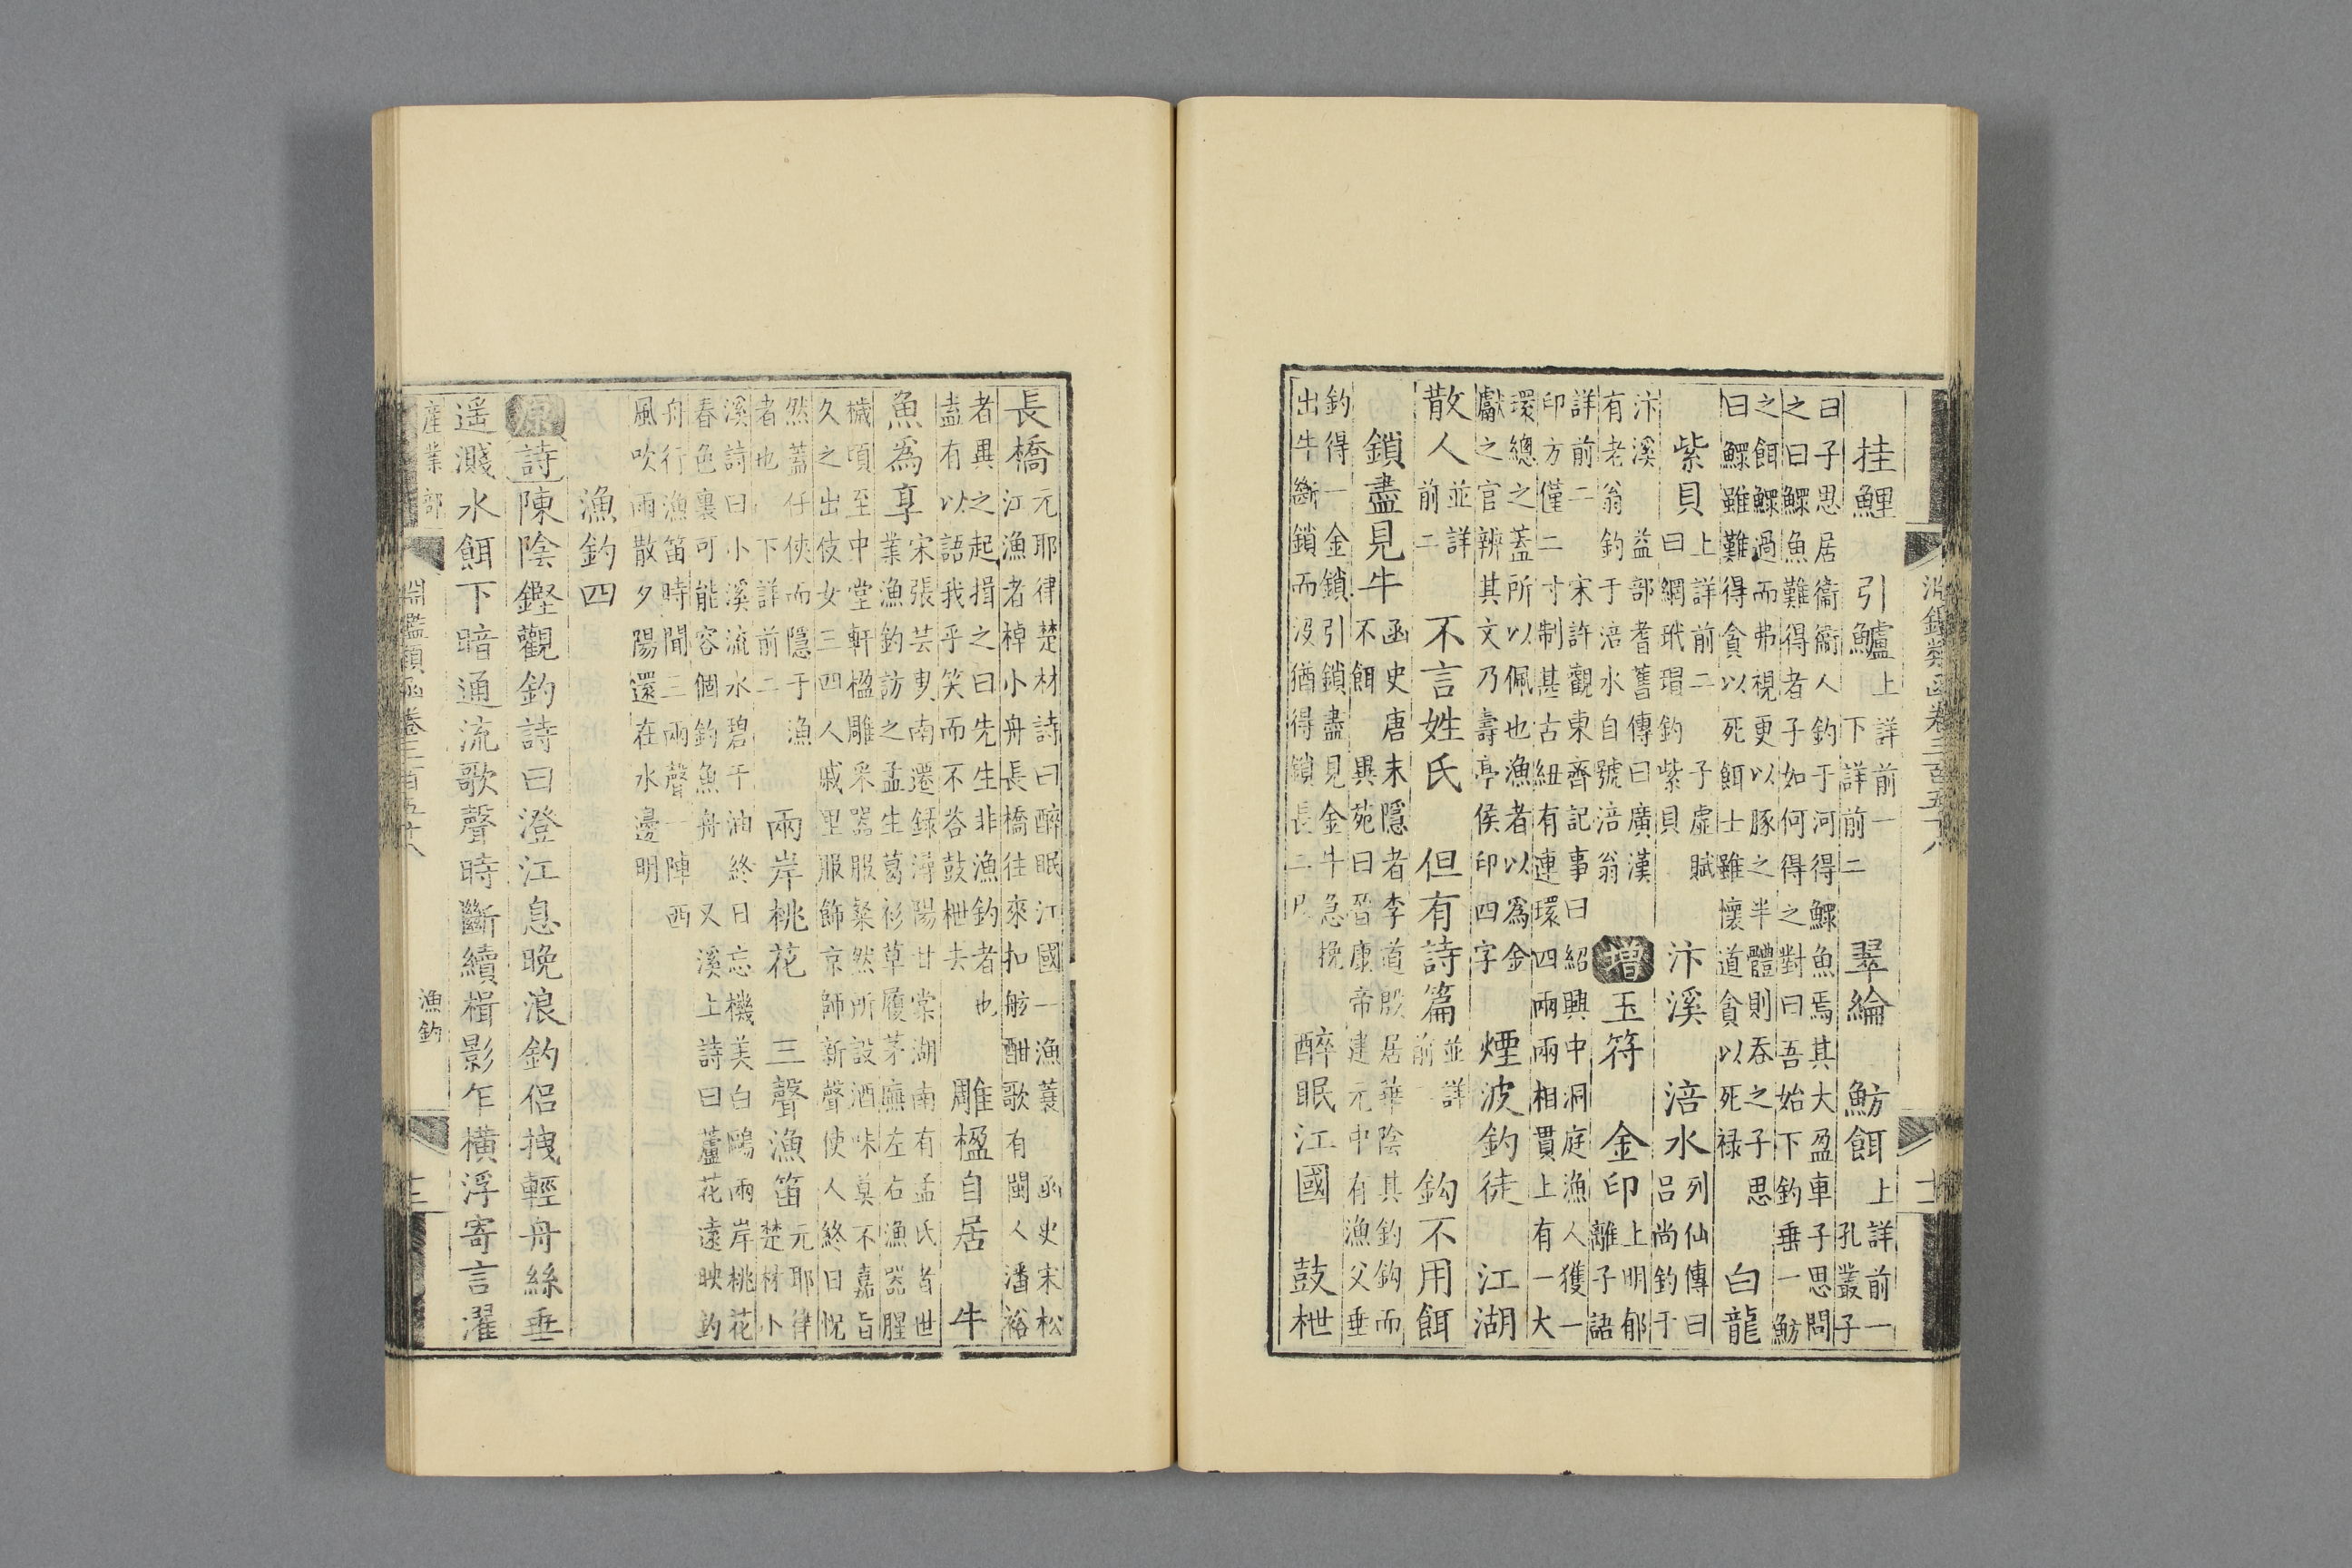 淵鑑類函卷三百五十八
桂鯉 引鱸
上詳前一
下詳前二
翠綸 魴餌
上詳前一
孔叢子
曰子思居衞衞人釣于河得鰥魚焉其大盈車子思問
之曰鰥魚難得者子如何得之對曰吾始下釣垂一魴
之餌鰥過而弗視更以豚之半體則吞之子思
曰鰥雖難得貪以死餌士雖懷道貪以死禄
白龍
紫貝
上詳前二 子虛賦
曰網玳瑁釣紫貝
汴溪 涪水
列仙傳曰
呂尚釣于
汴溪 益部耆舊傳曰廣漢
有老翁釣于涪水自號涪翁
增 玉符 金印
上明郁
離子語
詳前二 宋許觀東齊記事曰紹興中洞庭漁人獲一
印方僅二寸制甚古紐有連環四兩兩相貫上有一大
環總之蓋所以佩也漁者以爲金
獻之官辨其文乃壽亭侯印四字
煙波釣徒 江湖
散人
並詳
前二
不言姓氏 但有詩篇
並詳
前二
鈎不用餌
鎖盡見牛
函史唐末隱者李道殷居華陰其釣鈎而
不餌 異苑曰晉康帝建元中有漁父垂
釣得一金鎖引鎖盡見金牛急挽
出牛斷鎖而沒猶得鎖長二尺
醉眠江國 鼓枻
長橋
元耶律楚材詩曰醉眠江國一漁蓑 函史宋松
江漁者棹小舟長橋往來扣舷酣歌有閩人潘裕
者異之起揖之曰先生非漁釣者也
盍有以語我乎笑而不答鼓枻去
雕楹自居 牛
魚爲享
宋張芸叟南遷録潯陽甘棠湖南有孟氏者世
業漁釣訪之孟生葛衫草履茅廡左右漁器腥
穢頃至中堂軒楹雕采器服粲然所設酒味莫不嘉旨
久之出伎女三四人戚里服飾京師新聲使人終日怳
然蓋任俠而隱于漁
者也 下詳前二
兩岸桃花 三聲漁笛
元耶律
楚材卜
溪詩曰小溪流水碧于油終日忘機美白鷗兩岸桃花
春色裏可能容個釣魚舟 又溪上詩曰蘆花遠映釣
舟行漁笛時聞三兩聲一陣西
風吹雨散夕陽還在水邊明
漁釣四
原 詩 陳陰鏗觀釣詩曰澄江息晚浪釣侶拽輕舟絲垂
遥濺水餌下暗通流歌聲時斷續楫影乍橫浮寄言濯
產業部
淵鑑類函卷三百五十八
漁釣